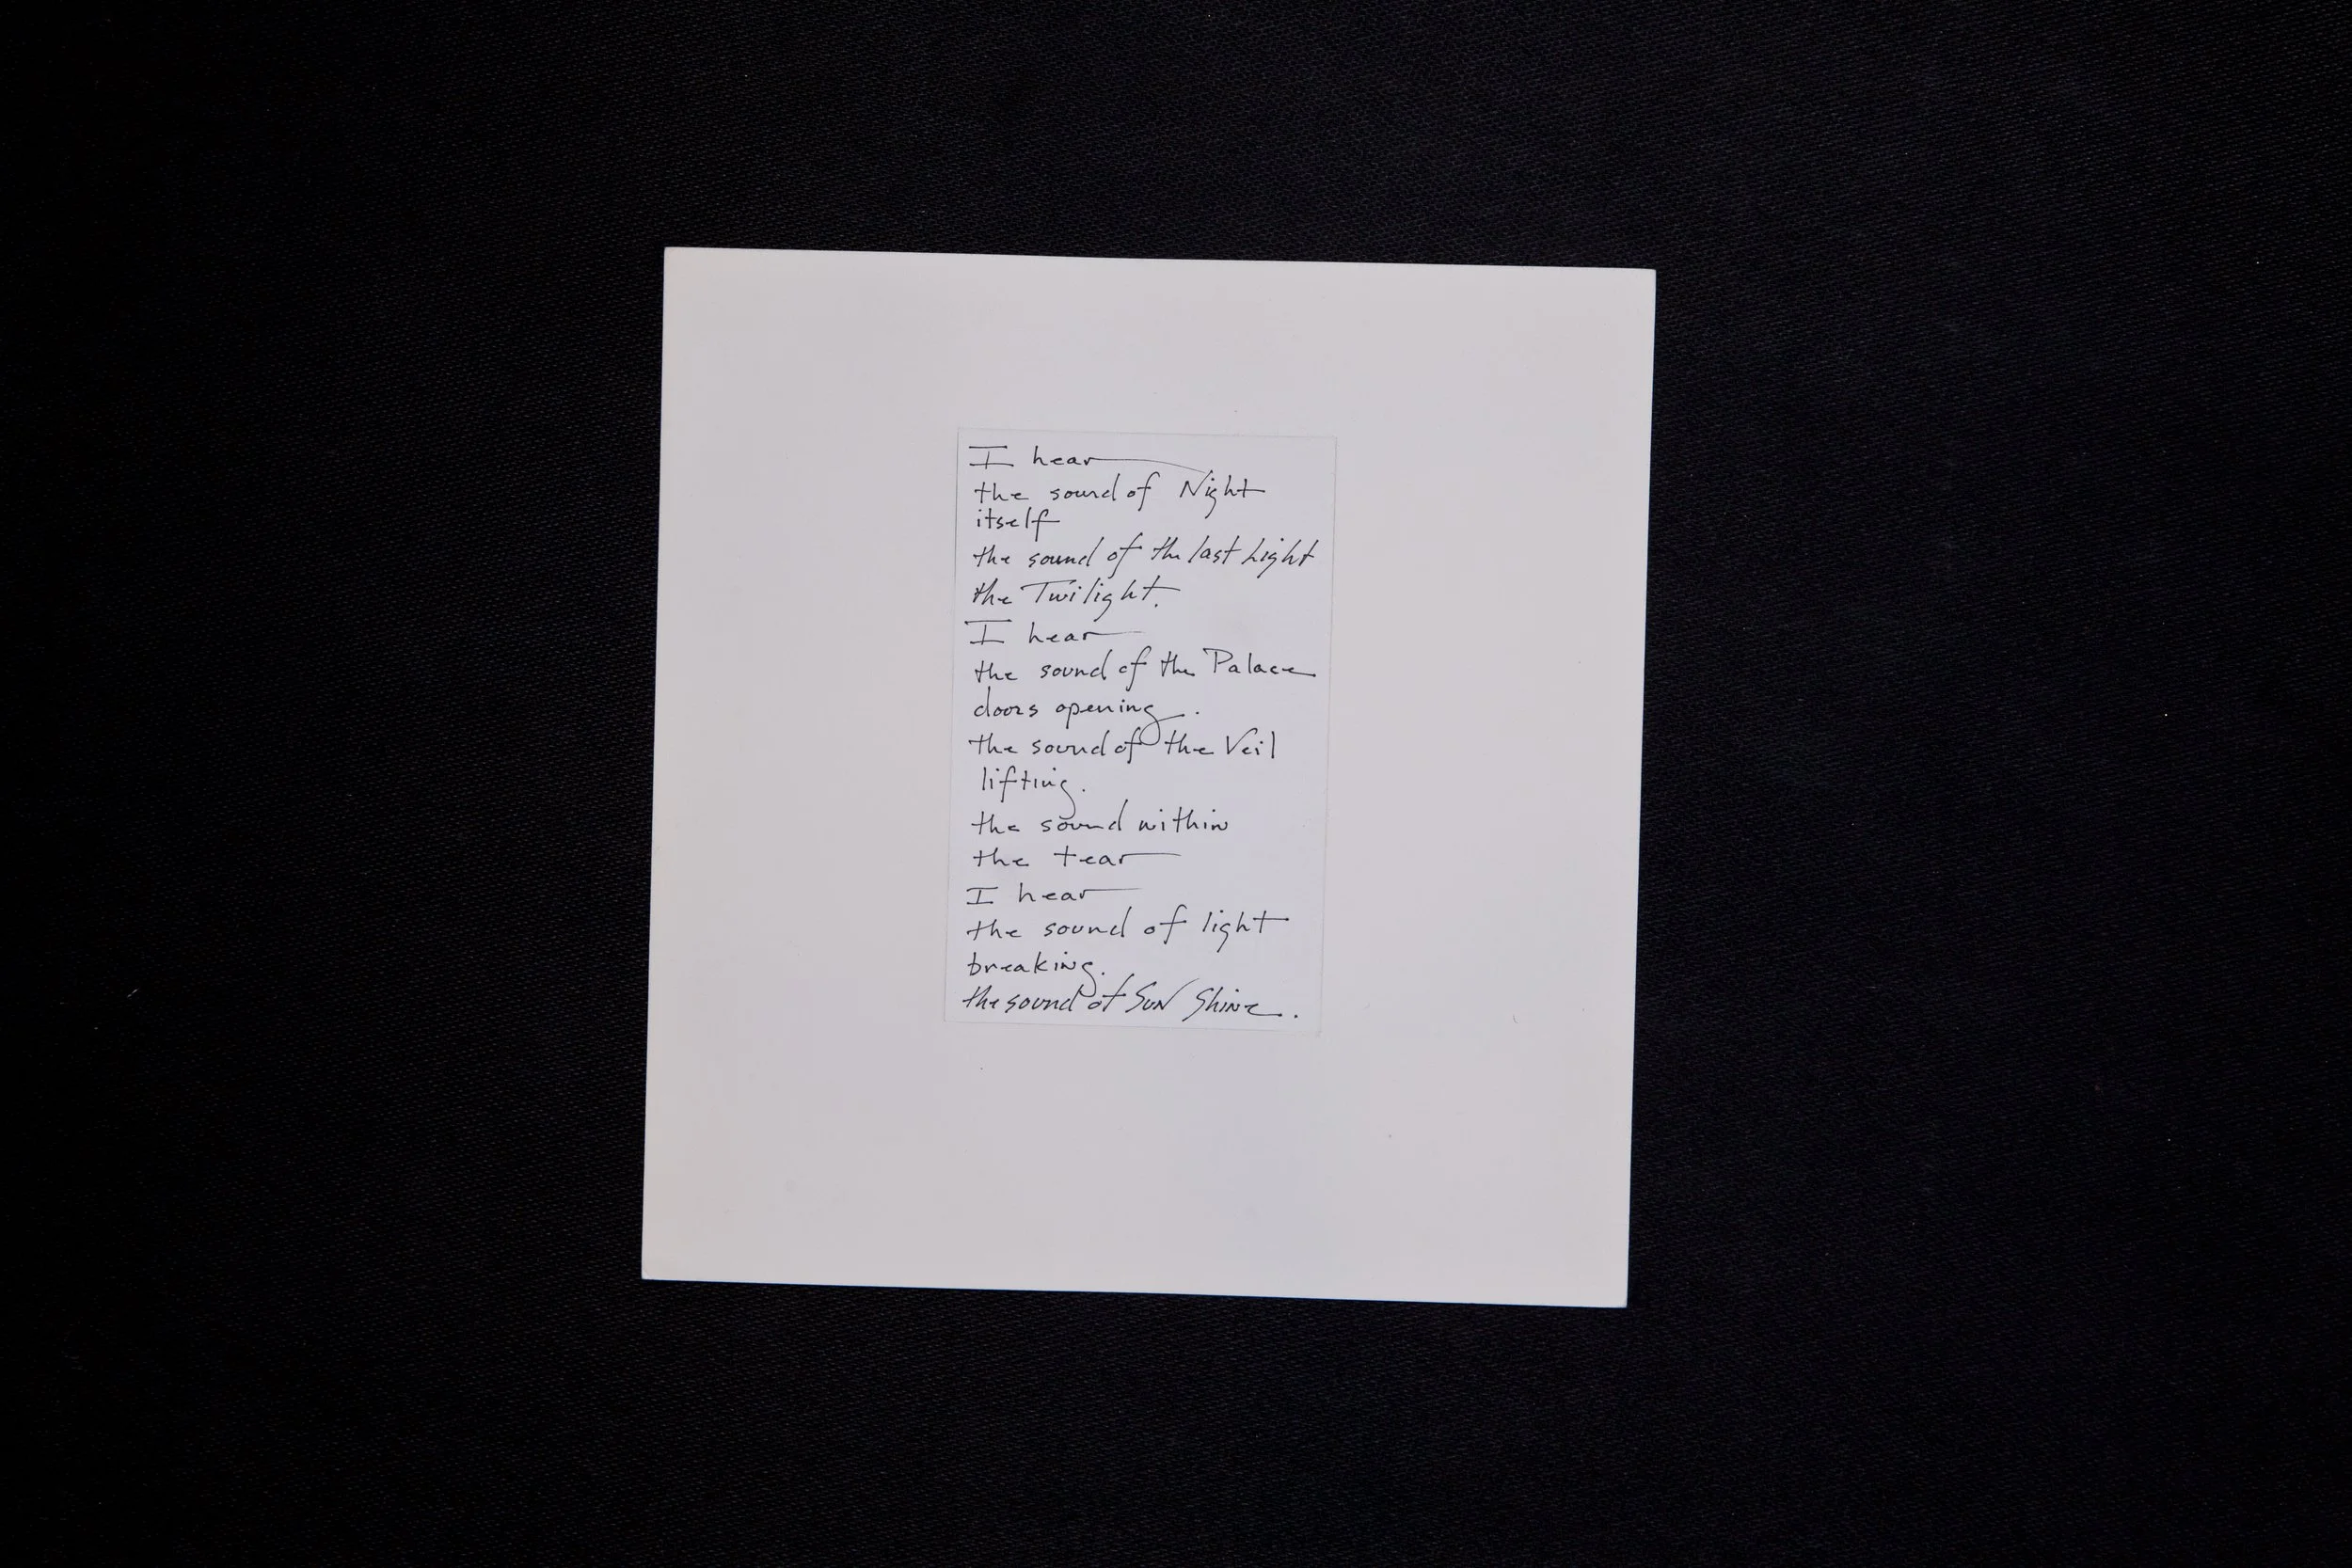 I hear
the sound of Night
itself
the sound of the last Light
the Twilight.
I hear
the sound of the Palace
doors opening.
the sound of the Veil
lifting.
the sound within
the tear
I hear
the sound of light
breaking.
the sound of Sun Shine.